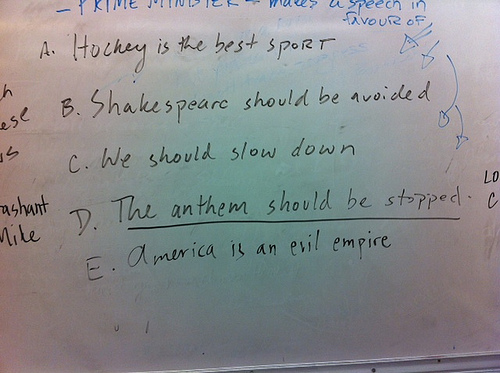 – PRIME MINISTER – makes a speech in
favour of
A. Hockey is the best sport
B. Shakespeare should be avoided
C. We should slow down
D. The anthem should be stopped.
E. America is an evil empire